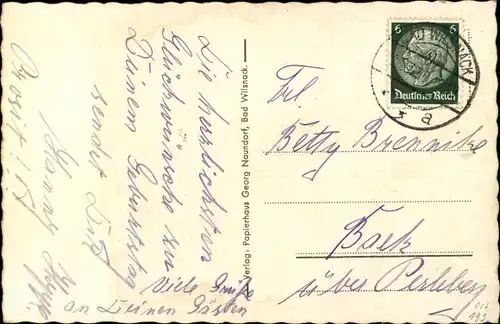 Die herzlichsten
Glückwünsche zu
Deinem Geburtstag
sendet Dir
Prosit!!
Viele Grüße
an Deinen Gästen
Verlag: Papierhaus Georg Naundorf, Bad Wilsnack.
6 6
Deutsches Reich
BAD WILSNACK
a
Frl.
Betty Brennike
Boek
über Perleberg